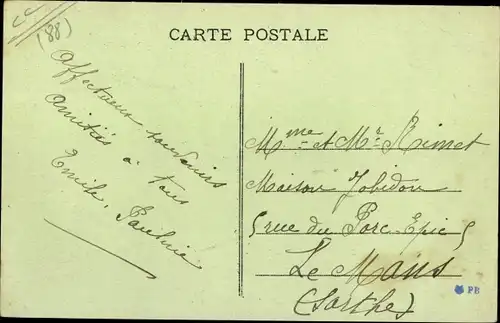 (88)
CARTE POSTALE
Affectueux souvenirs
Amitiés à tous
Emile, Pauline
Mme et Mr Rimet
Maison Jobidon
5 rue du Porc-Epic 5
Le Mans
(Sarthe)
PB